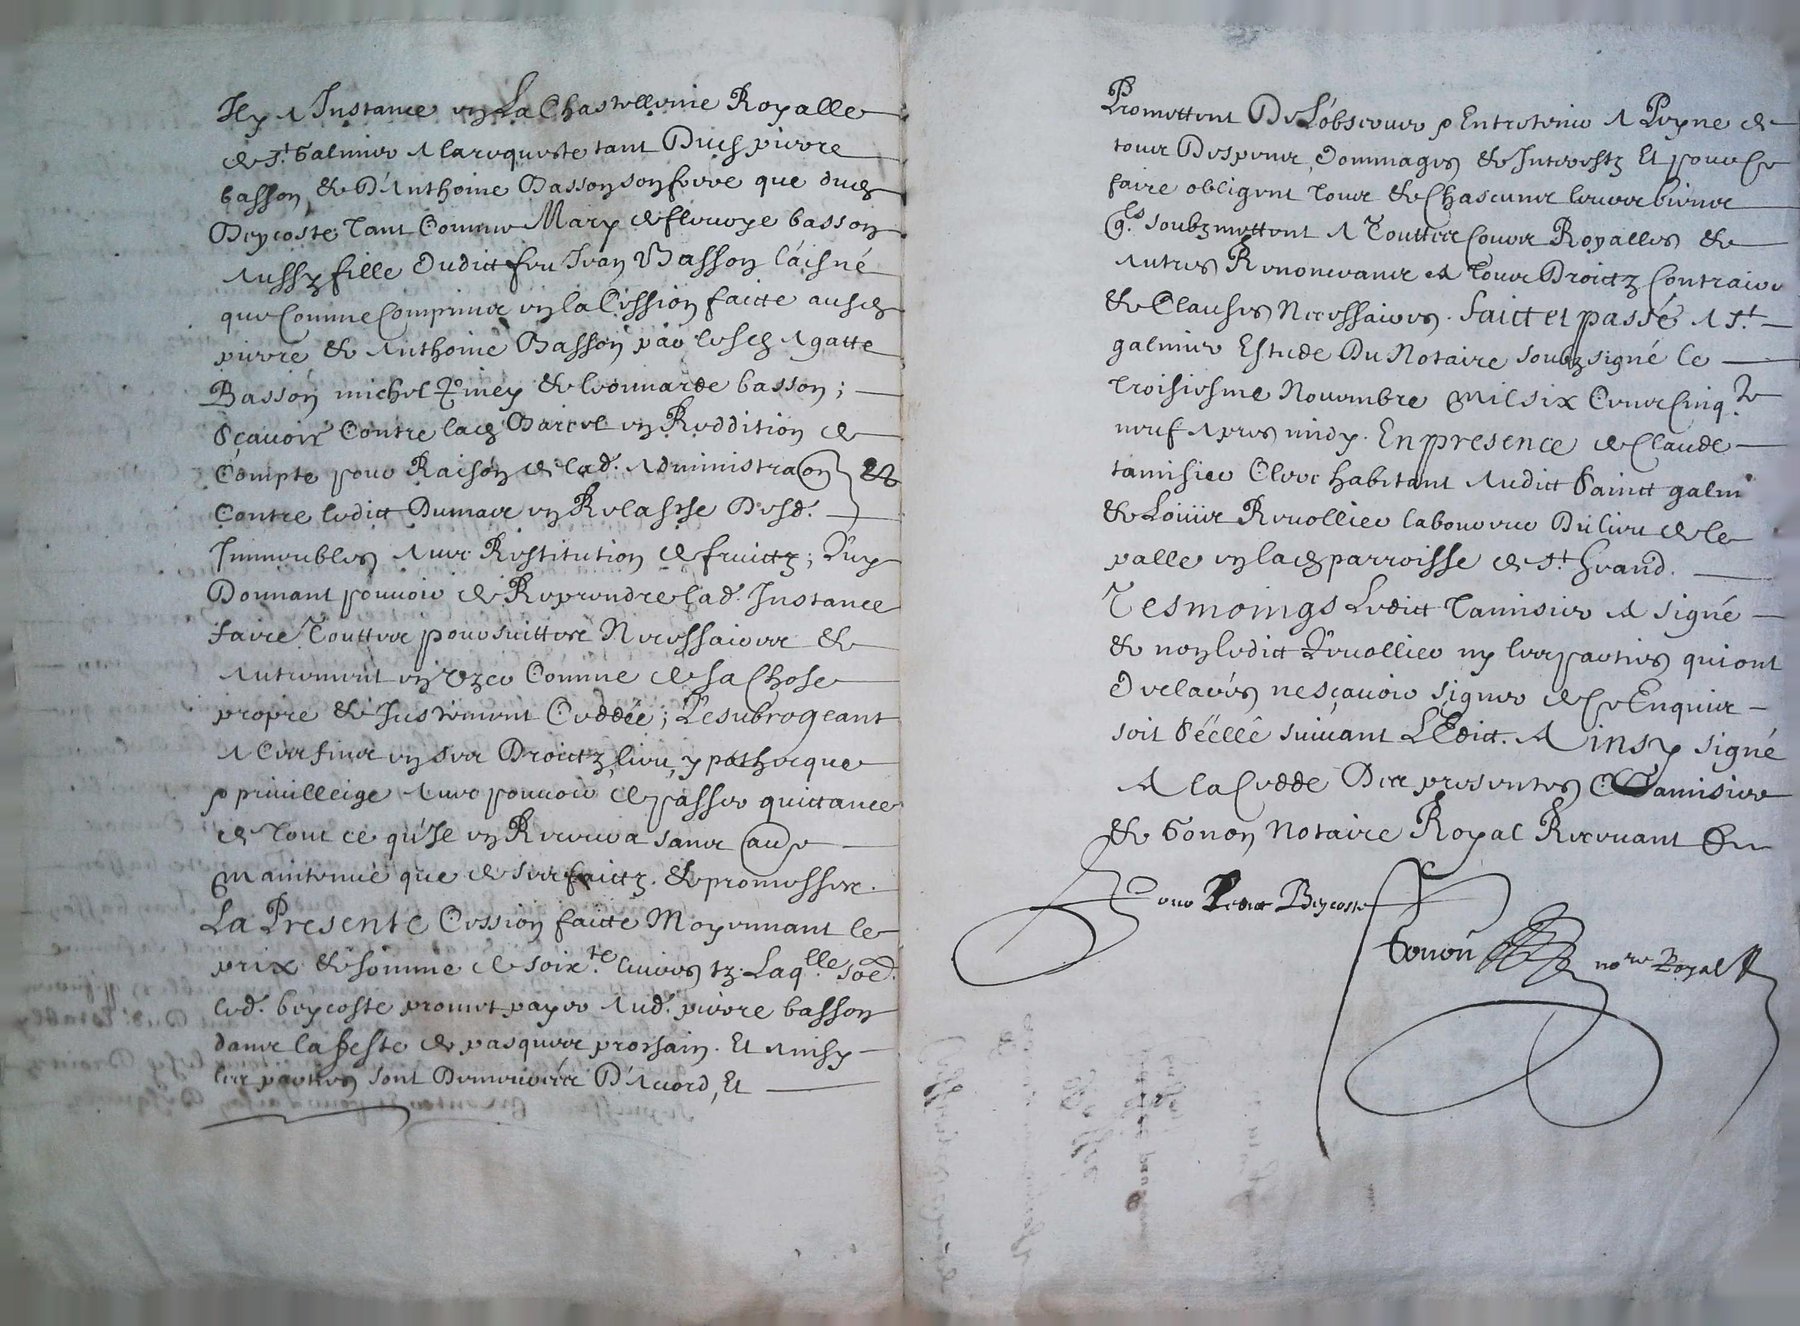 Il y a Instance en La Chastellenie Royalle
de St. Galmier a la requeste tant Dud. pierre
basson, & D'Anthoine Basson son frere que dud.
Beycoste tant Comme Mary de fleurye basson
Aussy fille dudict feu Jean Basson l'aisné
que Comme Comprinse en la Cession faitte ausd.
pierre & Anthoine Basson par lesd. Agatte
Basson michel & leonnarde basson ;
Sçavoir Contre lad. en Reddition de
Compte pour Raison de lad. Administraon &
Contre ledict Dumas en Relasche Desd.
Immeubles Avec Restitution de fruictz ; Luy
Donnant pouvoir de Reprendre lad. Instance
faire Touttes poursuittes Necessaires &
Autrement en Uzer Comme de sa Chose
propre & Justement Ceddée ; Le subrogeant
A Ces fins en ses Droictz, lieu, ypothecque
& privilleige Avec pouvoir de passer quittance
de tout ce qu'Il en Recevra sans aue
Maintenue que de ses faictz & promesses.
La Presente Cession faitte Moyennant le
prix & somme de soixte. livres tz. Laqlle. soe.
led. beycoste promet payer Aud. pierre basson
dans la feste de pasques prochain. Et Ainsy
les parties sont Demeurées D'Acord, Et
Promettent De L'observer & Entretenir A Peyne de
tous Despens, Dommages & Interestz Et pour Ce
faire obligent tous & Chascuns leurs biens
qls. soubzmettent A Touttes Cours Royalles &
Autres Renonceans A tous Droictz Contraires
& Clauses Necessaires. Faict et passé A St.
galmier Estude Du Notaire soubzsigné le
troisiesme Novembre Mil six Cens Cinqte.
neuf Apres midy. En presence de Claude
tamisier Clerc habitant Audict Sainct galmi
& Louis Revollier laboureur Du lieu de le
palle en lad. parroisse de St.
Tesmoings Ledict Tamisier A signé
& non ledict Revollier ny les parties qui ont
Declarés ne sçavoir signer de Ce Enquis
soit Séellé suivant L'Edict. Ainsy signé
A la Cedde Des presentes C Tamisier
& Gonon Notaire Royal Recevant
Pour Ledict Beycoste
Gonon nore Royal